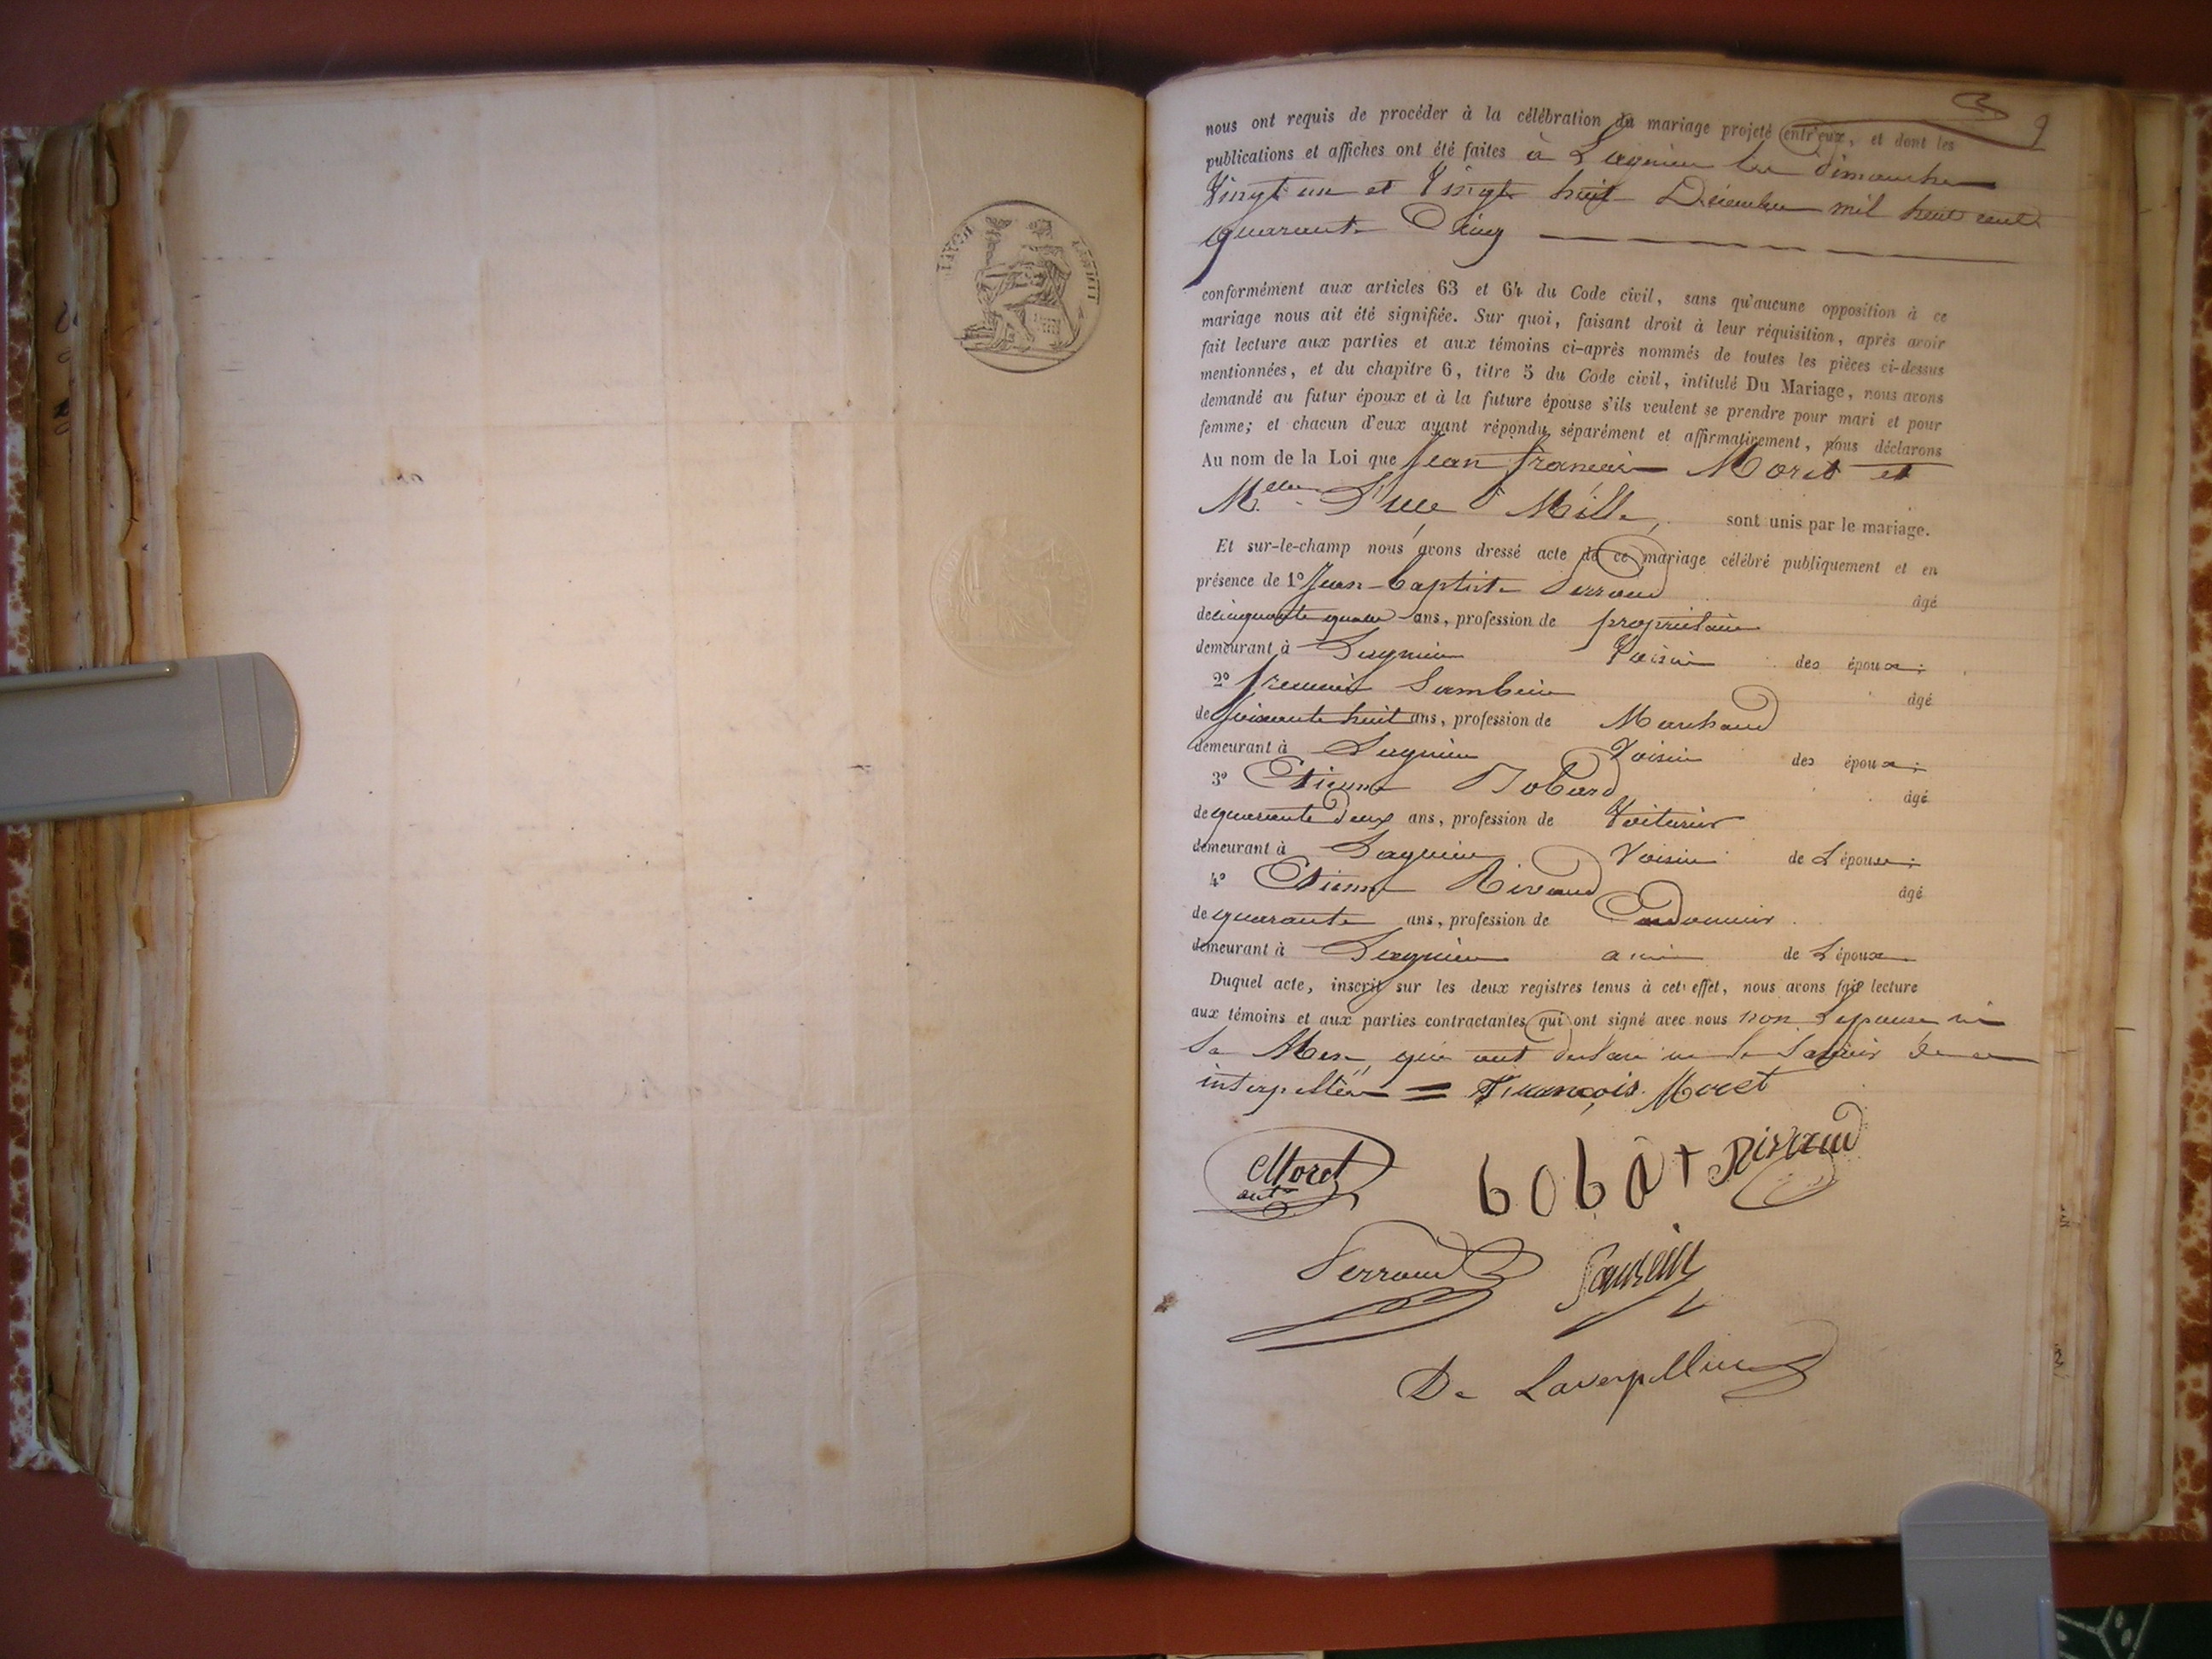 nous ont requis de procéder à la célébration du mariage projeté entr'eux, et dont les
publications et affiches ont été faites à Lagnieu les dimanches
Vingt un et Vingt huit Décembre mil huit cent
quarante Cinq
conformément aux articles 63 et 64 du Code civil, sans qu'aucune opposition à ce
mariage nous ait été signifiée. Sur quoi, faisant droit à leur réquisition, après avoir
fait lecture aux parties et aux témoins ci-après nommés de toutes les pièces ci-dessus
mentionnées, et du chapitre 6, titre 5 du Code civil, intitulé Du Mariage, nous avons
demandé au futur époux et à la future épouse s'ils veulent se prendre pour mari et pour
femme; et chacun d'eux ayant répondu séparément et affirmativement, nous déclarons
Au nom de la Loi que Jean françois Moret et
Melle Mille, sont unis par le mariage.
Et sur-le-champ nous avons dressé acte de ce mariage célébré publiquement et en
présence de 1° Jean-Baptiste Serraud âgé
de cinquante quatre ans, profession de propriétaire
demeurant à Lagnieu Voisin des époux;
2° françois Sambein âgé
de soixante huit ans, profession de Marchand
demeurant à Lagnieu Voisin des époux;
3° Etienne Bobard âgé
de quarante deux ans, profession de Voiturier
demeurant à Lagnieu Voisin de L'épouse;
4° Etienne Rivaud âgé
de quarante ans, profession de Cordonnier
demeurant à Lagnieu ami de L'époux
Duquel acte, inscrit sur les deux registres tenus à cet effet, nous avons fait lecture
aux témoins et aux parties contractantes qui ont signé avec nous non L'épouse ni
Sa Mère qui ont déclaré ne le Savoir de ce
interpellées = François Moret
Moret
Rivaud
Serraud